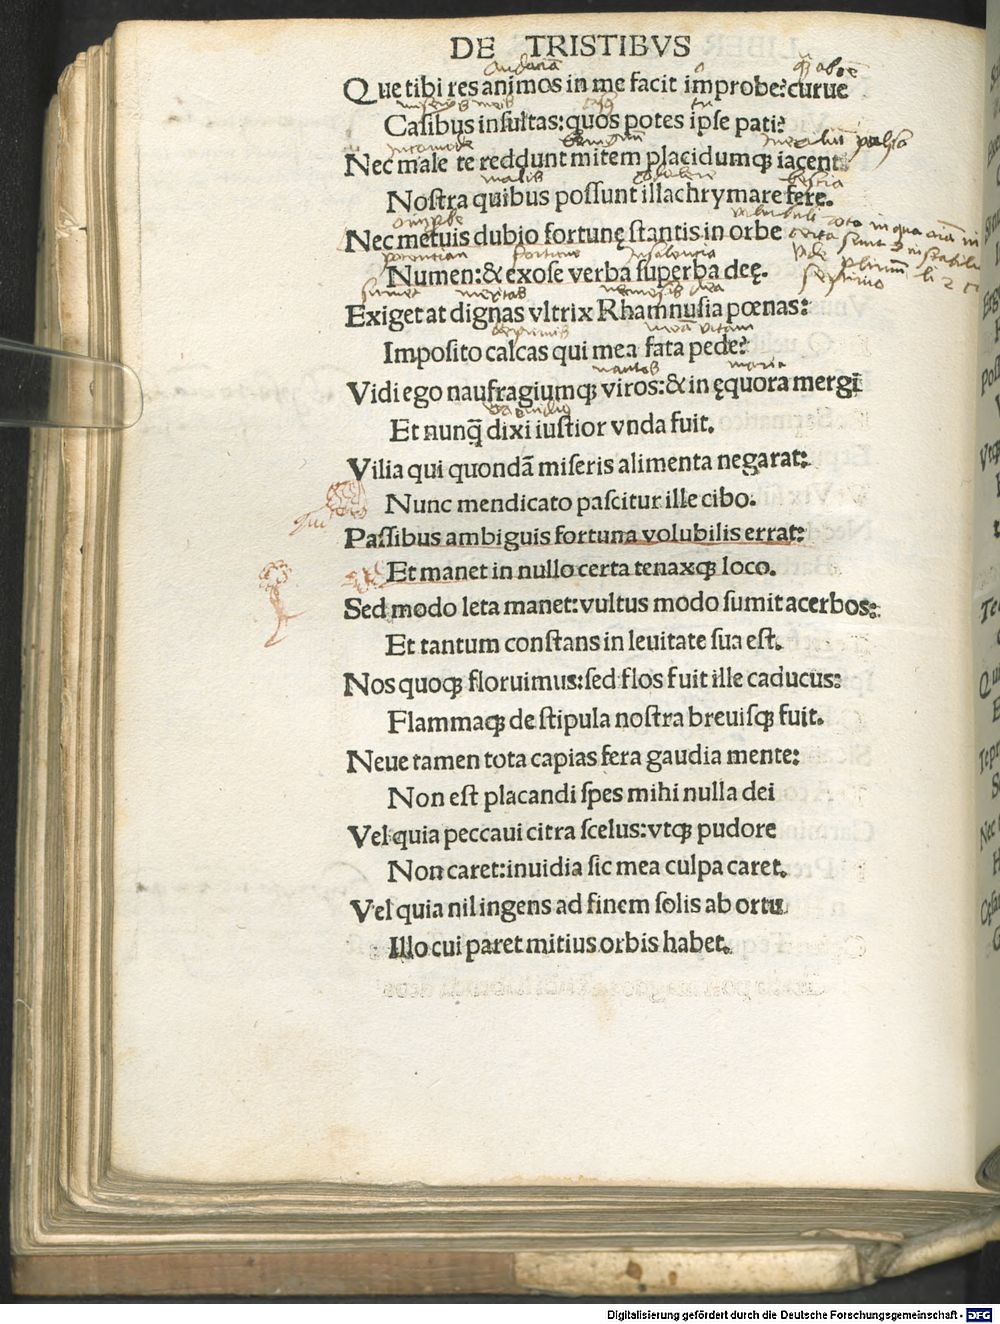 DE TRISTIBVS
audaciā
Que tibi res animos in me facit improbe? curue
miserijs meis
Casibus insultas: quos potes ipse pati?
Nec male te reddunt mitem placidumqꝫ iacenti
malis
bestia
Nostra quibus possunt illachrymare fere.
Nec metuis dubio fortunę stantis in orbe
Numen: & exose verba superba deę.
sumet
nemesis dea
Exiget at dignas vltrix Rhamnusia pœnas:
meā vitam
Imposito calcas qui mea fata pede?
nautas
maria
Vidi ego naufragiumqꝫ viros: & in ęquora mergi
Et nunq̃ dixi iustior vnda fuit.
Vilia qui quondā miseris alimenta negarat:
Nunc mendicato pascitur ille cibo.
Passibus ambiguis fortuna volubilis errat:
Et manet in nullo certa tenaxqꝫ loco.
Sed modo leta manet: vultus modo sumit acerbos:
Et tantum constans in leuitate sua est.
Nos quoqꝫ floruimus: sed flos fuit ille caducus:
Flammaqꝫ de stipula nostra breuisqꝫ fuit.
Neue tamen tota capias fera gaudia mente:
Non est placandi spes mihi nulla dei
Vel quia peccaui citra scelus: vtqꝫ pudore
Non caret: inuidia sic mea culpa caret.
Vel quia nil ingens ad finem solis ab ortu
Illo cui paret mitius orbis habet.
Digitalisierung gefördert durch die Deutsche Forschungsgemeinschaft - DFG